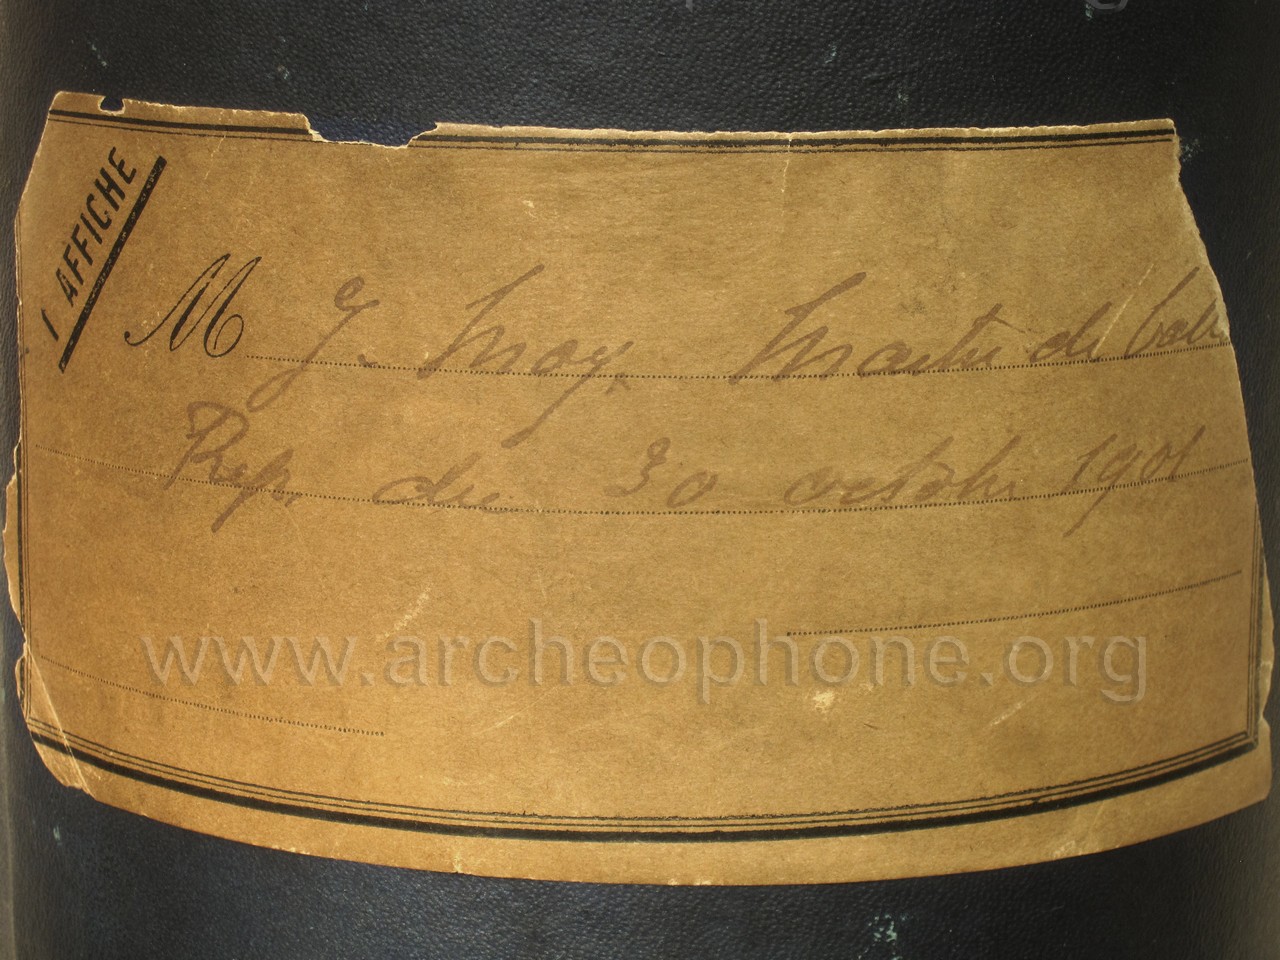 1 AFFICHE
M J. Moy. Maitre de ball
Rep. du 30 octobre 1901
www.archeophone.org